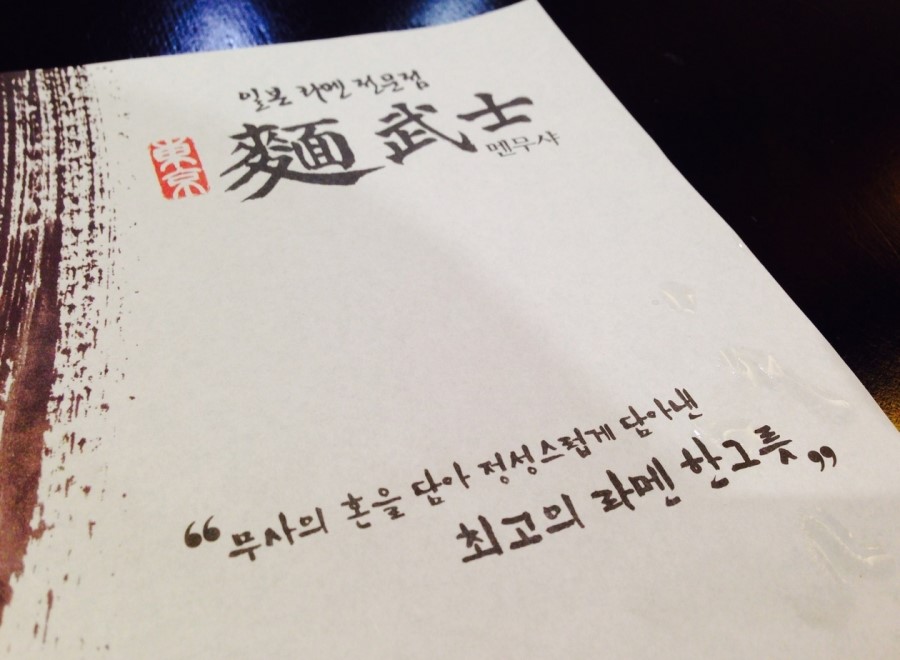 일본 라멘 전문점
東京
麵武士
멘무샤
“무사의 혼을 담아 정성스럽게 담아낸
최고의 라멘 한그릇”